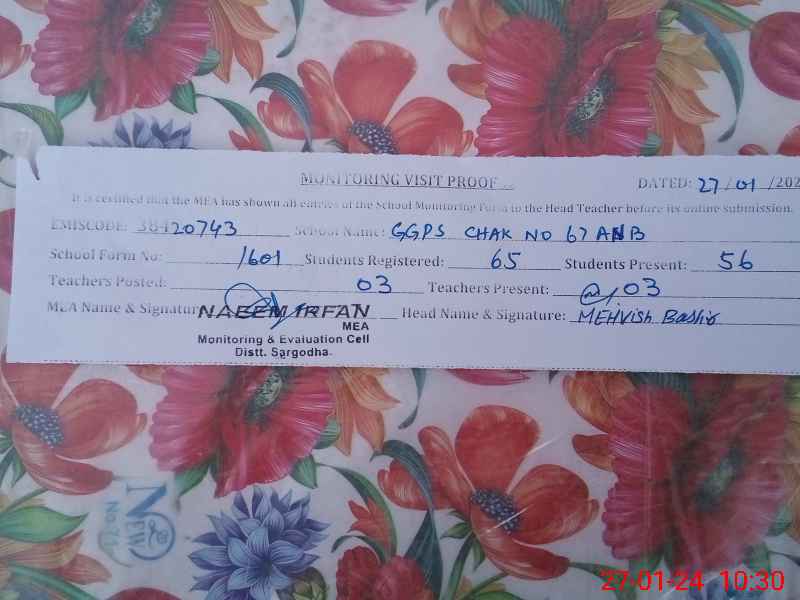 MONITORING VISIT PROOF
DATED: 27/01/202
It is certified that the MEA has shown all entries of the School Monitoring Form to the Head Teacher before its online submission.
EMISCODE: 38420743 School Name: GGPS CHAK NO 67 ANB
School Form No: 1601 Students Registered: 65 Students Present: 56
Teachers Posted: 03 Teachers Present: 03
MEA Name & Signature NAEEM IRFAN Head Name & Signature: MEHVish Bashir
MEA
Monitoring & Evaluation Cell
Distt. Sargodha.
New
27-01-24 10:30